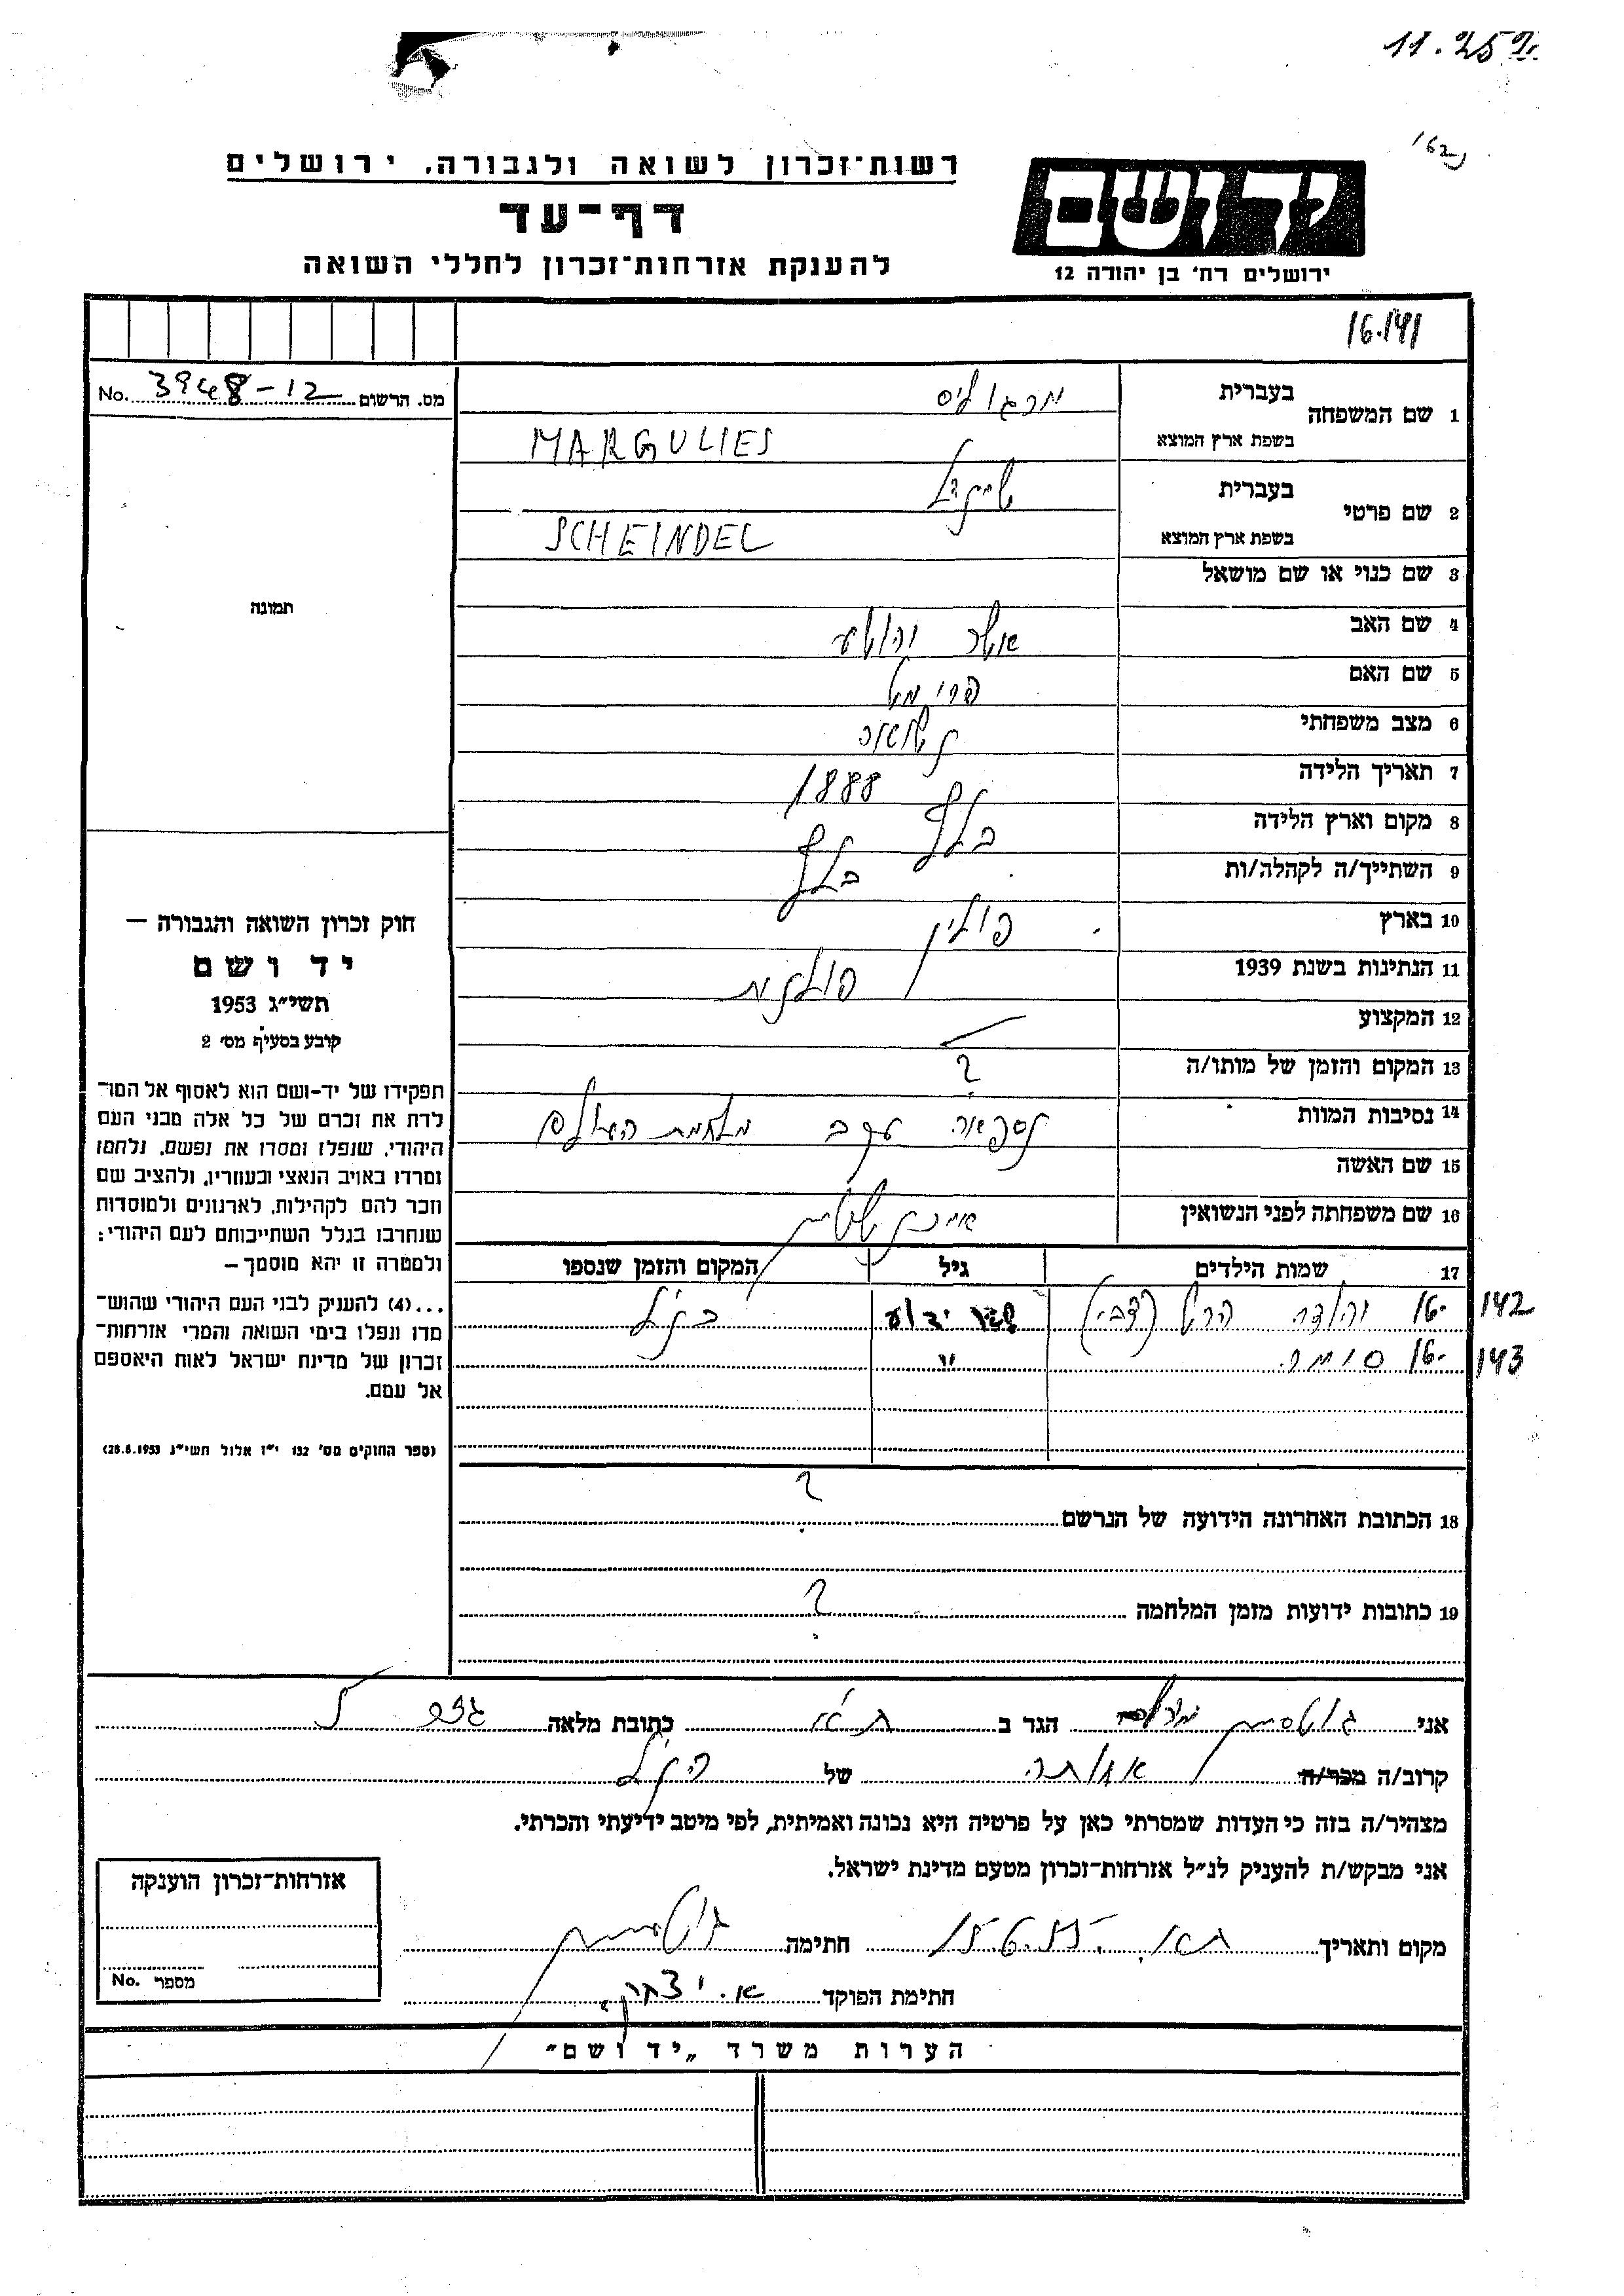 11.25
162
רשות־זכרון לשואה ולגבורה, ירושלים
דף־עד
להענקת אזרחות־זכרון לחללי השואה
יד ושם
ירושלים רח' בן יהודה 12
16.141
No. 3948-12 מס. הרשום
1 שם המשפחה בעברית מרגוליס
בשפת ארץ המוצא MARGULIES
2 שם פרטי בעברית שיינדל
בשפת ארץ המוצא SCHEINDEL
3 שם כנוי או שם מושאל
4 שם האב אשר יהושע
5 שם האם פרימט
6 מצב משפחתי נשואה
7 תאריך הלידה 1888
8 מקום וארץ הלידה
9 השתייך/ה לקהלה/ות
10 בארץ פולין
11 הנתינות בשנת 1939 פולנית
12 המקצוע
13 המקום והזמן של מותו/ה ?
14 נסיבות המוות נספתה ערב מלחמת העולם
15 שם האשה
16 שם משפחתה לפני הנשואין
17 שמות הילדים גיל המקום והזמן שנספו
16. 142 יהודה הרש (צבי) בלתי ידוע כנ"ל
16. 143 סימה "
18 הכתובת האחרונה הידועה של הנרשם ?
19 כתובות ידועות מזמן המלחמה ?
תמונה
חוק זכרון השואה והגבורה —
יד ושם
תשי"ג 1953
קובע בסעיף מס' 2
תפקידו של יד-ושם הוא לאסוף אל המו־
לדת את זכרם של כל אלה מבני העם
היהודי, שנפלו ומסרו את נפשם, נלחמו
ומרדו באויב הנאצי ובעוזריו, ולהציב שם
וזכר להם לקהילות, לארגונים ולמוסדות
שנחרבו בגלל השתייכותם לעם היהודי;
ולמטרה זו יהא מוסמך —
...(4) להעניק לבני העם היהודי שהוש־
מדו ונפלו בימי השואה והמרי אזרחות־
זכרון של מדינת ישראל לאות היאספם
אל עמם.
(ספר החוקים מס' 132 י"ז אלול תשי"ג 28.8.1953)
אני גוטסמן הגר ב ת"א כתובת מלאה
קרוב/ה מכר/ה אחותה של הנ"ל
מצהיר/ה בזה כי העדות שמסרתי כאן על פרטיה היא נכונה ואמיתית, לפי מיטב ידיעתי והכרתי.
אני מבקש/ת להעניק לנ"ל אזרחות־זכרון מטעם מדינת ישראל.
מקום ותאריך ת"א. 15.6.55 חתימה גוטסמן
חתימת הפוקד א. יצחקי
אזרחות־זכרון הוענקה
מספר No.
הערות משרד „יד ושם"